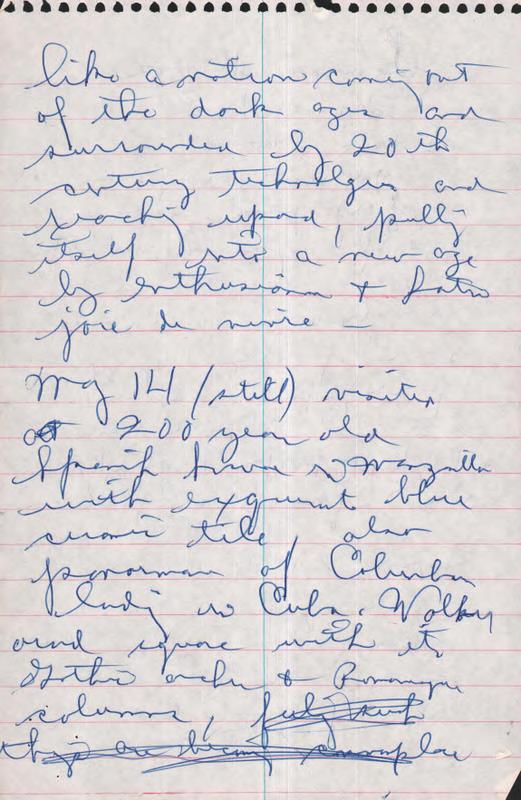 like a nation coming out
of the dark ages and
surrounded by 20th
century technolgies and
reaching upward, pulling
itself into a new age
by enthusiasm + Latin
joie de vivre —
Aug 14 (still) visited
200 year old
Spanish house
with exquisit blue
ceramic tile, also
panorama of Columbus
landing in Cuba. Walking
around square with its
Gothic arches + Romanesque
columns,
they are becoming